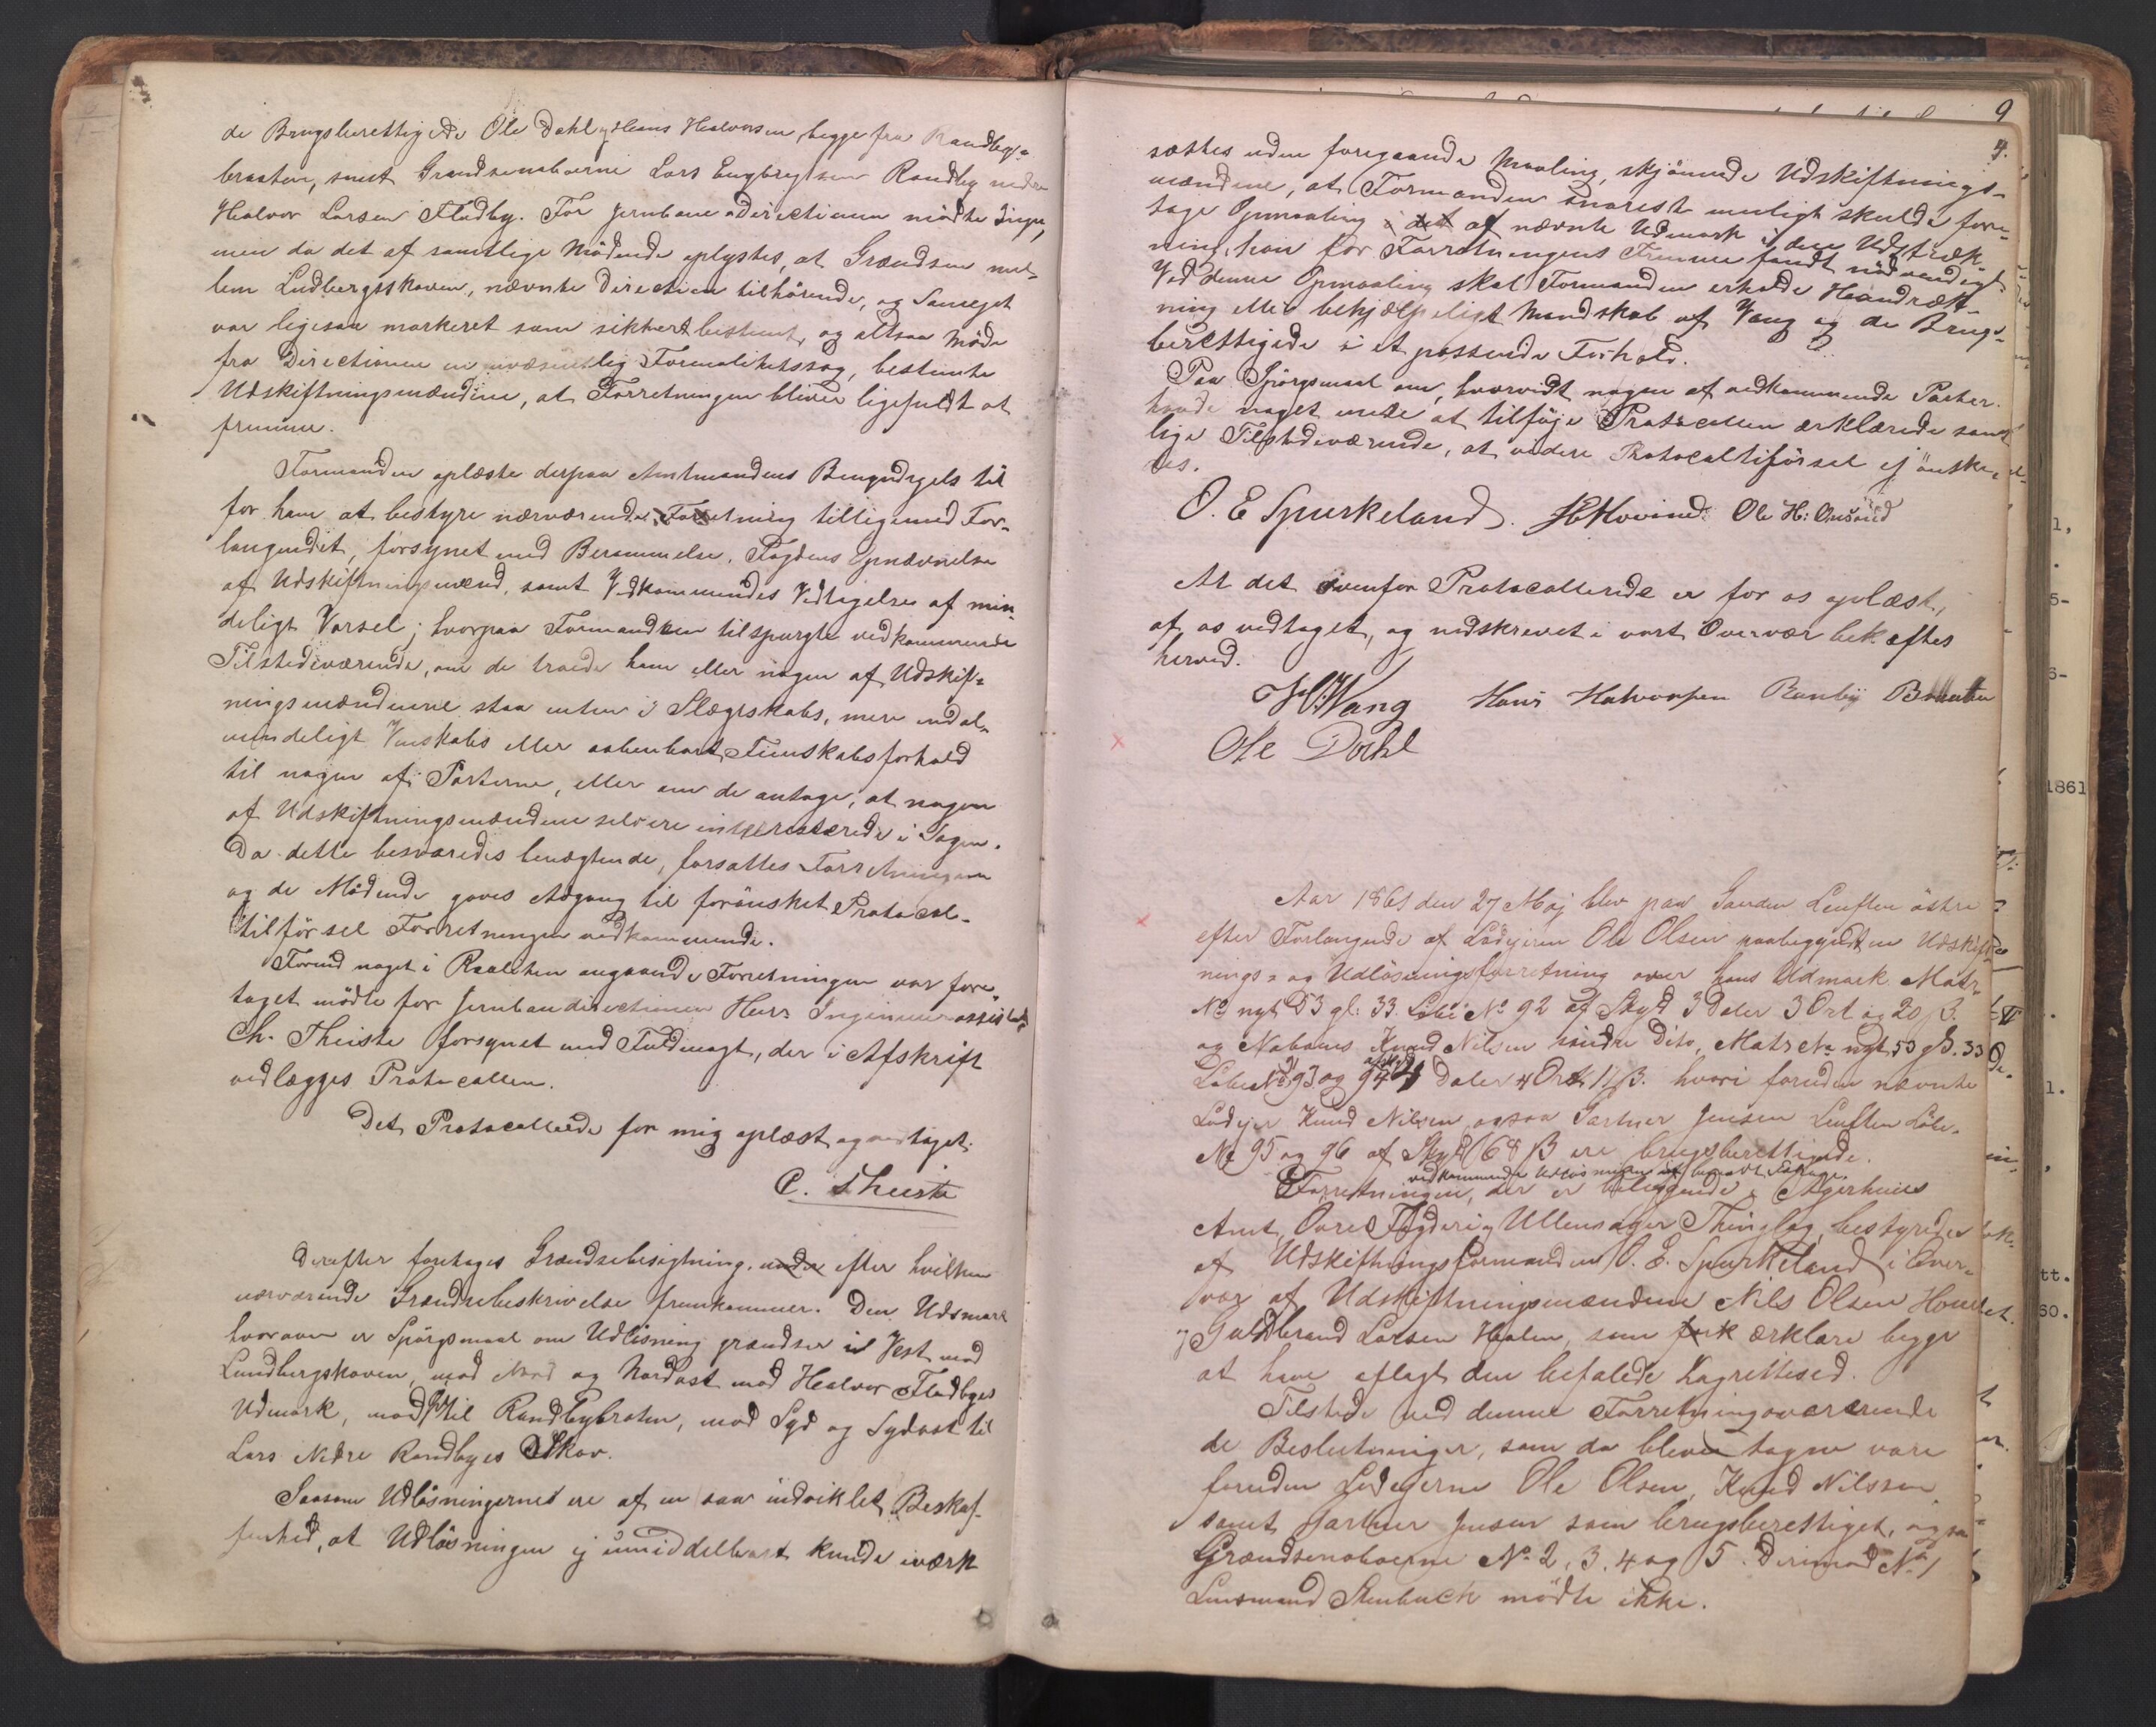 de Brugsberettigede Ole Dahl og Hans Halvorsen begge fra Randbye-
braaten, samt Grændsenaboerne Lars Engbrygtsen Randby nedre
Halvor Larsen Fladby. For Jernbanedirectionen mödte Ingen,
men da det af samtlige Mödende oplystes, at Grændsen mel-
lem Lundbergskoven, nævnte Direction tilhörende, og Sameiet
var ligesaa markeret som sikkert bestemt, og altsaa Möde
fra Directionen en uvæsentlig Formalitetssag, bestemte
Udskiftningsmændene, at Forretningen bliver ligefuldt at
fremme.
Formanden oplæste derpaa Amtmandens Bemyndigelse til
for ham at bestyre nærværende Forretning tilligemed For-
langendet, forsynet med Berammelse, Fogdens Opnævnelse
af Udskiftningsmænd, samt Vedkommendes Vedtagelse af min-
deligt Varsel; hvorpaa Formanden tilspurgte vedkommende
Tilstedeværende, om de troede ham eller nogen af Udskift-
ningsmændene staa enten i Slægtskabs, mere end al-
mindeligt Venskabs eller aabenbart Fiendskabsforhold
til nogen af Parterne, eller om de antage, at nogen
af Udskiftningsmændene selv ere interesserede i Sagen.
Da dette besvaredes benægtende, forsattes Forretningen
og de Mödende gaves Adgang til forönsket Protocol-
tilförsel Forretningen vedkommende.
Forend noget i Realiteten angaaende Forretningen var fore-
taget mödte for Jernbanedirectionen Herr Ingenieurassistent
Ch. Theiste forsynet med Fuldmagt, der i Afskrift
vedlægges Protocollen.
Det Protocollerede for mig oplæst og vedtaget.
C. Theiste
Derefter foretages Grændsebesigtning, under efter hvilken
nærværende Grændsebeskrivelse fremkommer. Den Udmark
hvorover er Spörgsmaal om Udlösning grændser i Vest mod
Lundbergskoven, mod Nord og Nordost mod Halvor Fladbyes
Udmark, mod Öst til Randbybraten, mod Syd og Sydost til
Lars Nedre Randbyes Skov.
Saasom Udlösningerne ere af en saa indviklet Beskaf-
fenhed, at Udlösningen ej umiddelbart kunde iværk-
9
4.
sættes uden foregaaende Maaling, skjönnede Udskiftnings-
mændene, at Formanden snarest muligt skulde fore-
tage Opmaaling i det af nævnte Udmark i den Udstræk-
ning, han for Forretningens Fremme fandt nödvendigt.
Ved denne Opmaaling skal Formanden erholde Haandræk-
ning eller behjælpeligt Mandskab af Vang og de Brugs-
berettigede i et passende Forhold.
Paa Spörgsmaal om, hvorvidt nogen af vedkommende Parter
havde noget mere at tilföje Protocollen ærklærede samt-
lige Tilstedeværende, at videre Protocoltilförsel ej önske-
des.
O. E Spurkeland. Hovind. Ole H: Onsöid
At det ovenfor Protocollerede er for os oplæst,
af os vedtaget, og nedskrevet i vort Overvær bekræftes
herved.
H. Wang Hans Halvorsen Ranby Braaten
Ole Dahl
Aar 1861 den 27 Maj blev paa Gaarden Leuften östre
efter Forlangende af Lodejeren Ole Olsen paabegyndt en Udskift-
nings- og Udlösningsforretning over hans Udmark Matr.
No nyt 53 gl: 33. Löbe No 92 af Skyld 3 Daler 3 Ort og 20 ß.
og Naboens Knud Nilsen söndre Dito, Matr No nyt 53 gl. 33
Löbe No 93 og 94 af Skyld 4 Daler 4 Ort 11 ß. hvori foruden nævnte
Lodejer Knud Nilsen ogsaa Gartner Jensen Leuften Löbe-
No 95 og 96 af Skyld 68 ß ere brugsberettigede.
vedkommende Udlösningen
Forretningen, der er beliggende i Agerhuus
Amt, Övre Fogderi, Ullensager Thinglag, bestyredes
af Udskiftningsformanden O. E. Spurkeland i Over-
vær af Udskiftningsmændene Nils Olsen
og Guldbrand Larsen Halen, som ærklære begge
at have aflagt den befalede Lagretteed.
Tilstede ved denne Forretningoværærende
de Beslutninger, som da bleve tagne vare
foruden Lodejerne Ole Olsen, Knud Nilssen
samt Gartner Jensen som brugsberettiget, ogsaa
Grændsenaboerne No 2, 3, 4 og 5. Derimod No 1
Lensmand Stenbuch mödte ikke.
1861